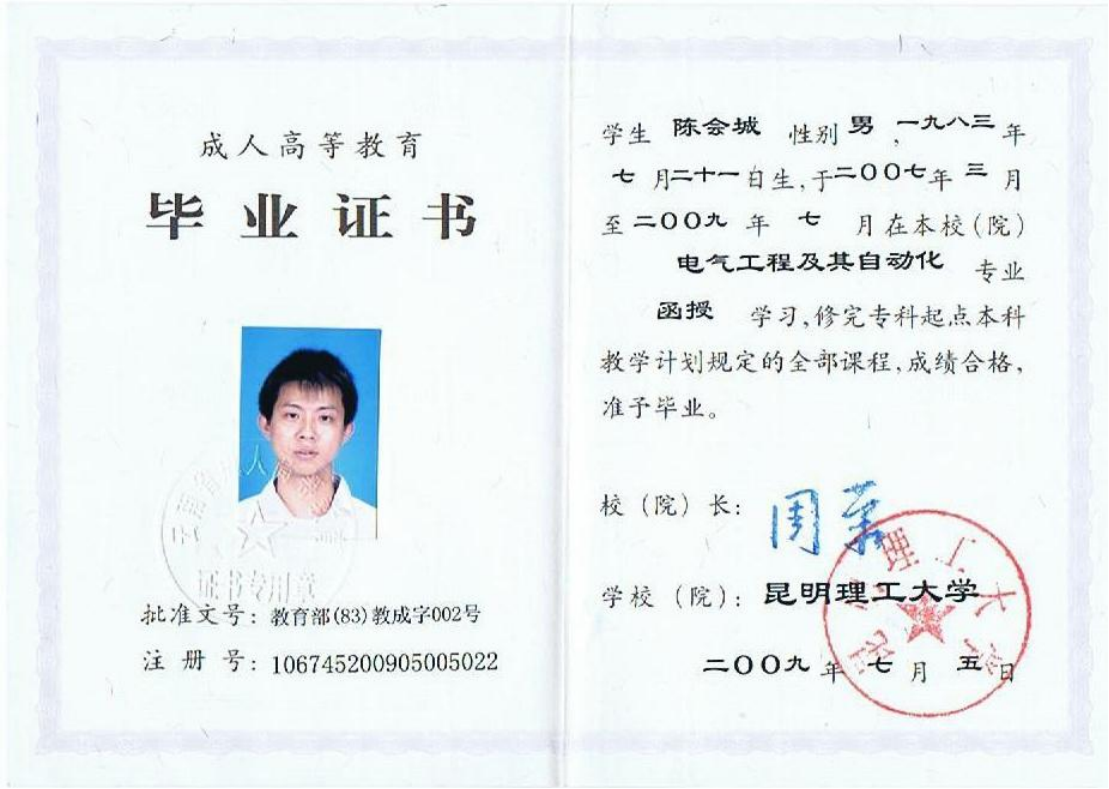 成人高等教育
毕业证书
证书专用章
批准文号：教育部(83)教成字002号
注册号：106745200905005022
学生 陈会城 性别 男，一九八三年
七月二十一日生，于二〇〇七年三月
至二〇〇九年七月在本校(院)
电气工程及其自动化 专业
函授 学习，修完专科起点本科
教学计划规定的全部课程，成绩合格，
准予毕业。
校（院）长：
学校（院）：昆明理工大学
二〇〇九年七月五日
昆明理工大学